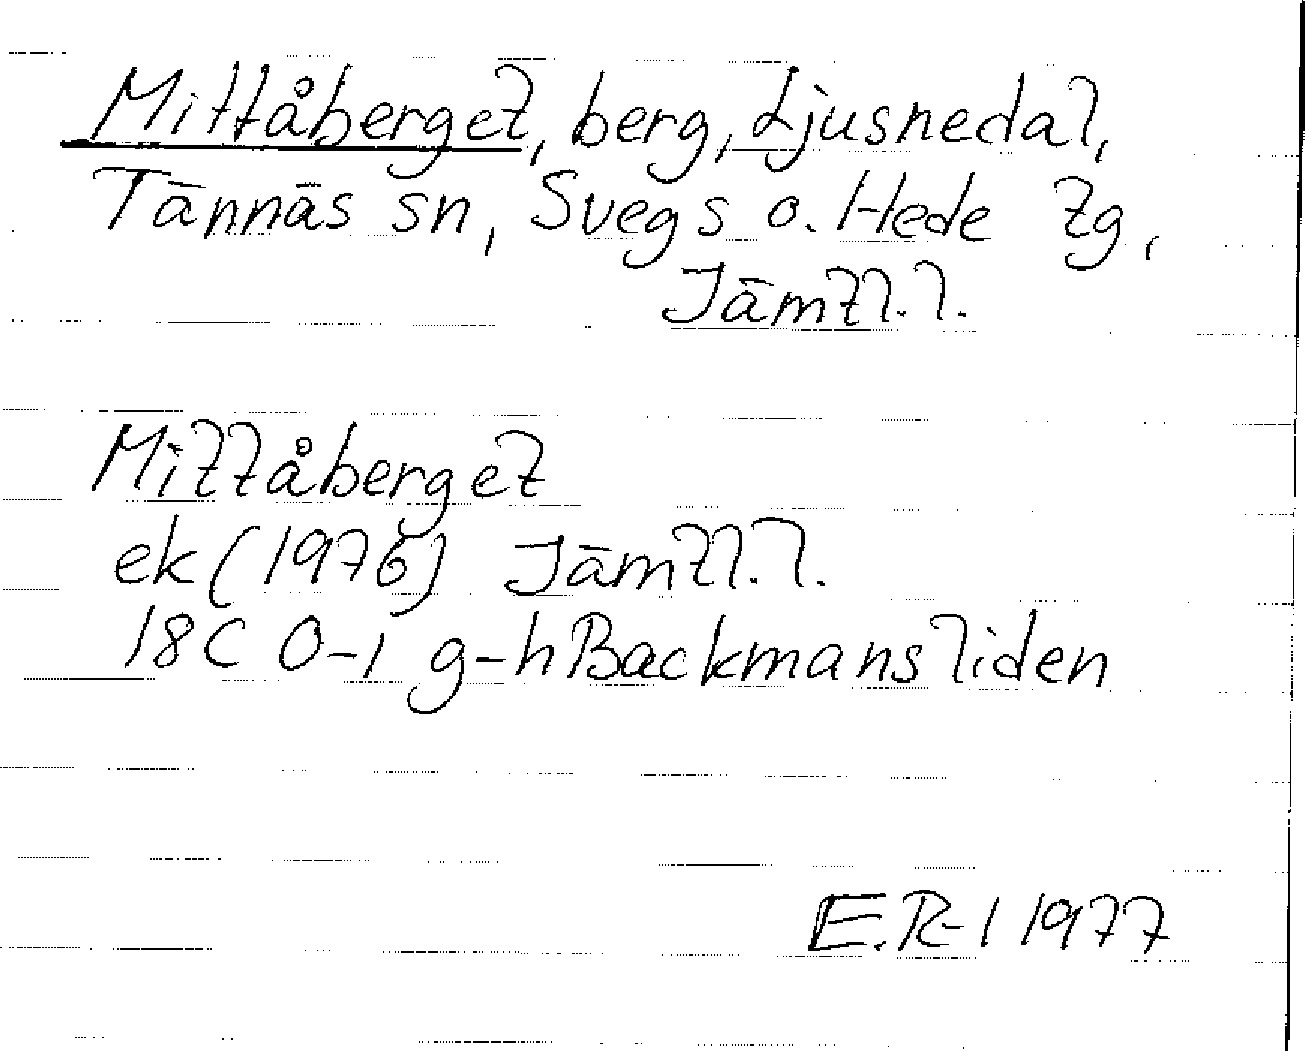 Mittåberget, berg, Ljusnedal,
Tännäs sn, Svegs o. Hede tg,
Jämtl. l.
Mittåberget
ek (1976) Jämtl. l.
18C 0-1 g-h Backmansliden
E.R-l 1977